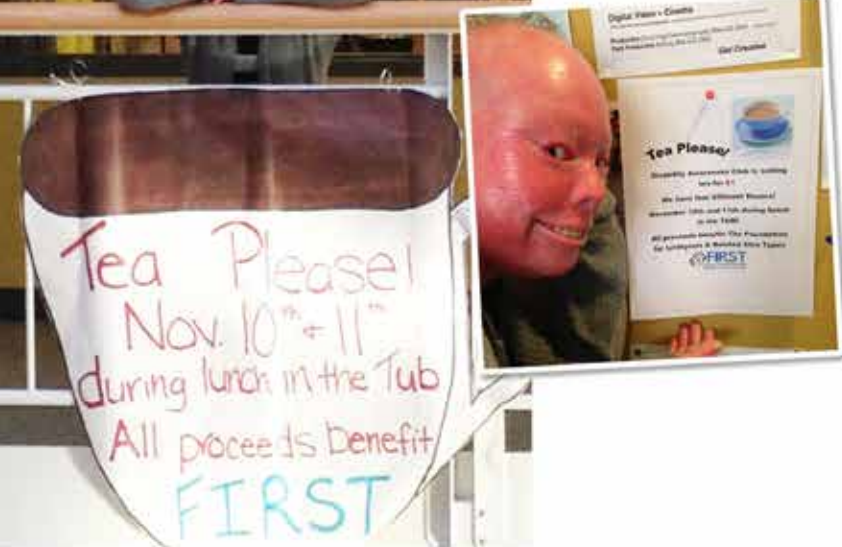 Tea Please!
Nov. 10th + 11th
during lunch in the Tub
All proceeds benefit
FIRST
Digital Video + Cinema
Get Creative
Tea Please!
Disability Awareness Club is selling
tea for $1
We have four different flavors!
November 10th and 11th during lunch
in the TUB!
All proceeds benefit The Foundation
for Ichthyosis & Related Skin Types
FIRST